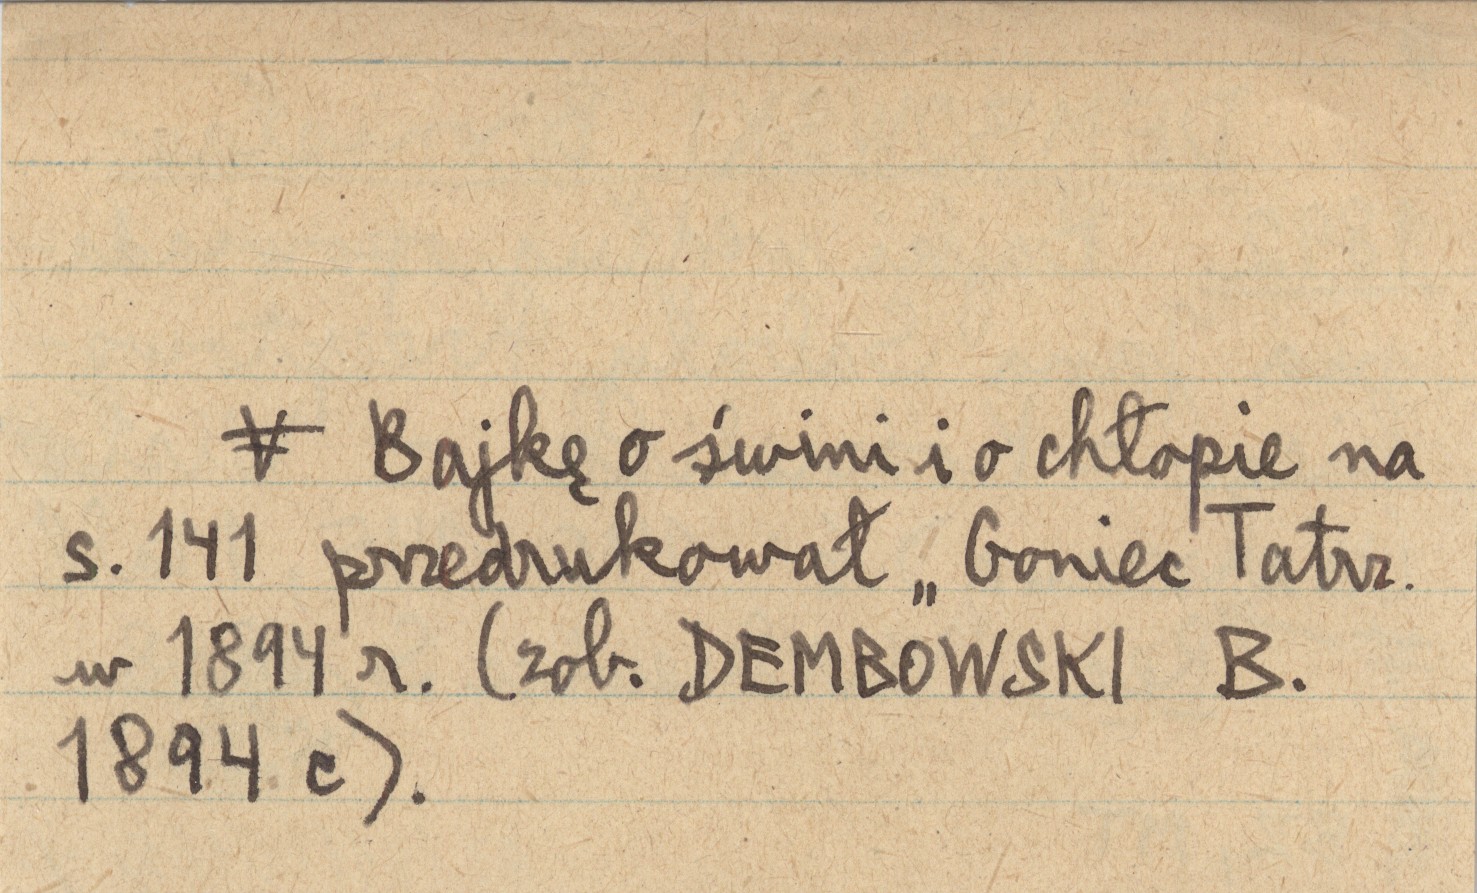 ∀ Bajkę o świni i o chłopie na
s. 141 przedrukował „Goniec Tatrz.
w 1894 r. (zob. DEMBOWSKI B.
1894 c).